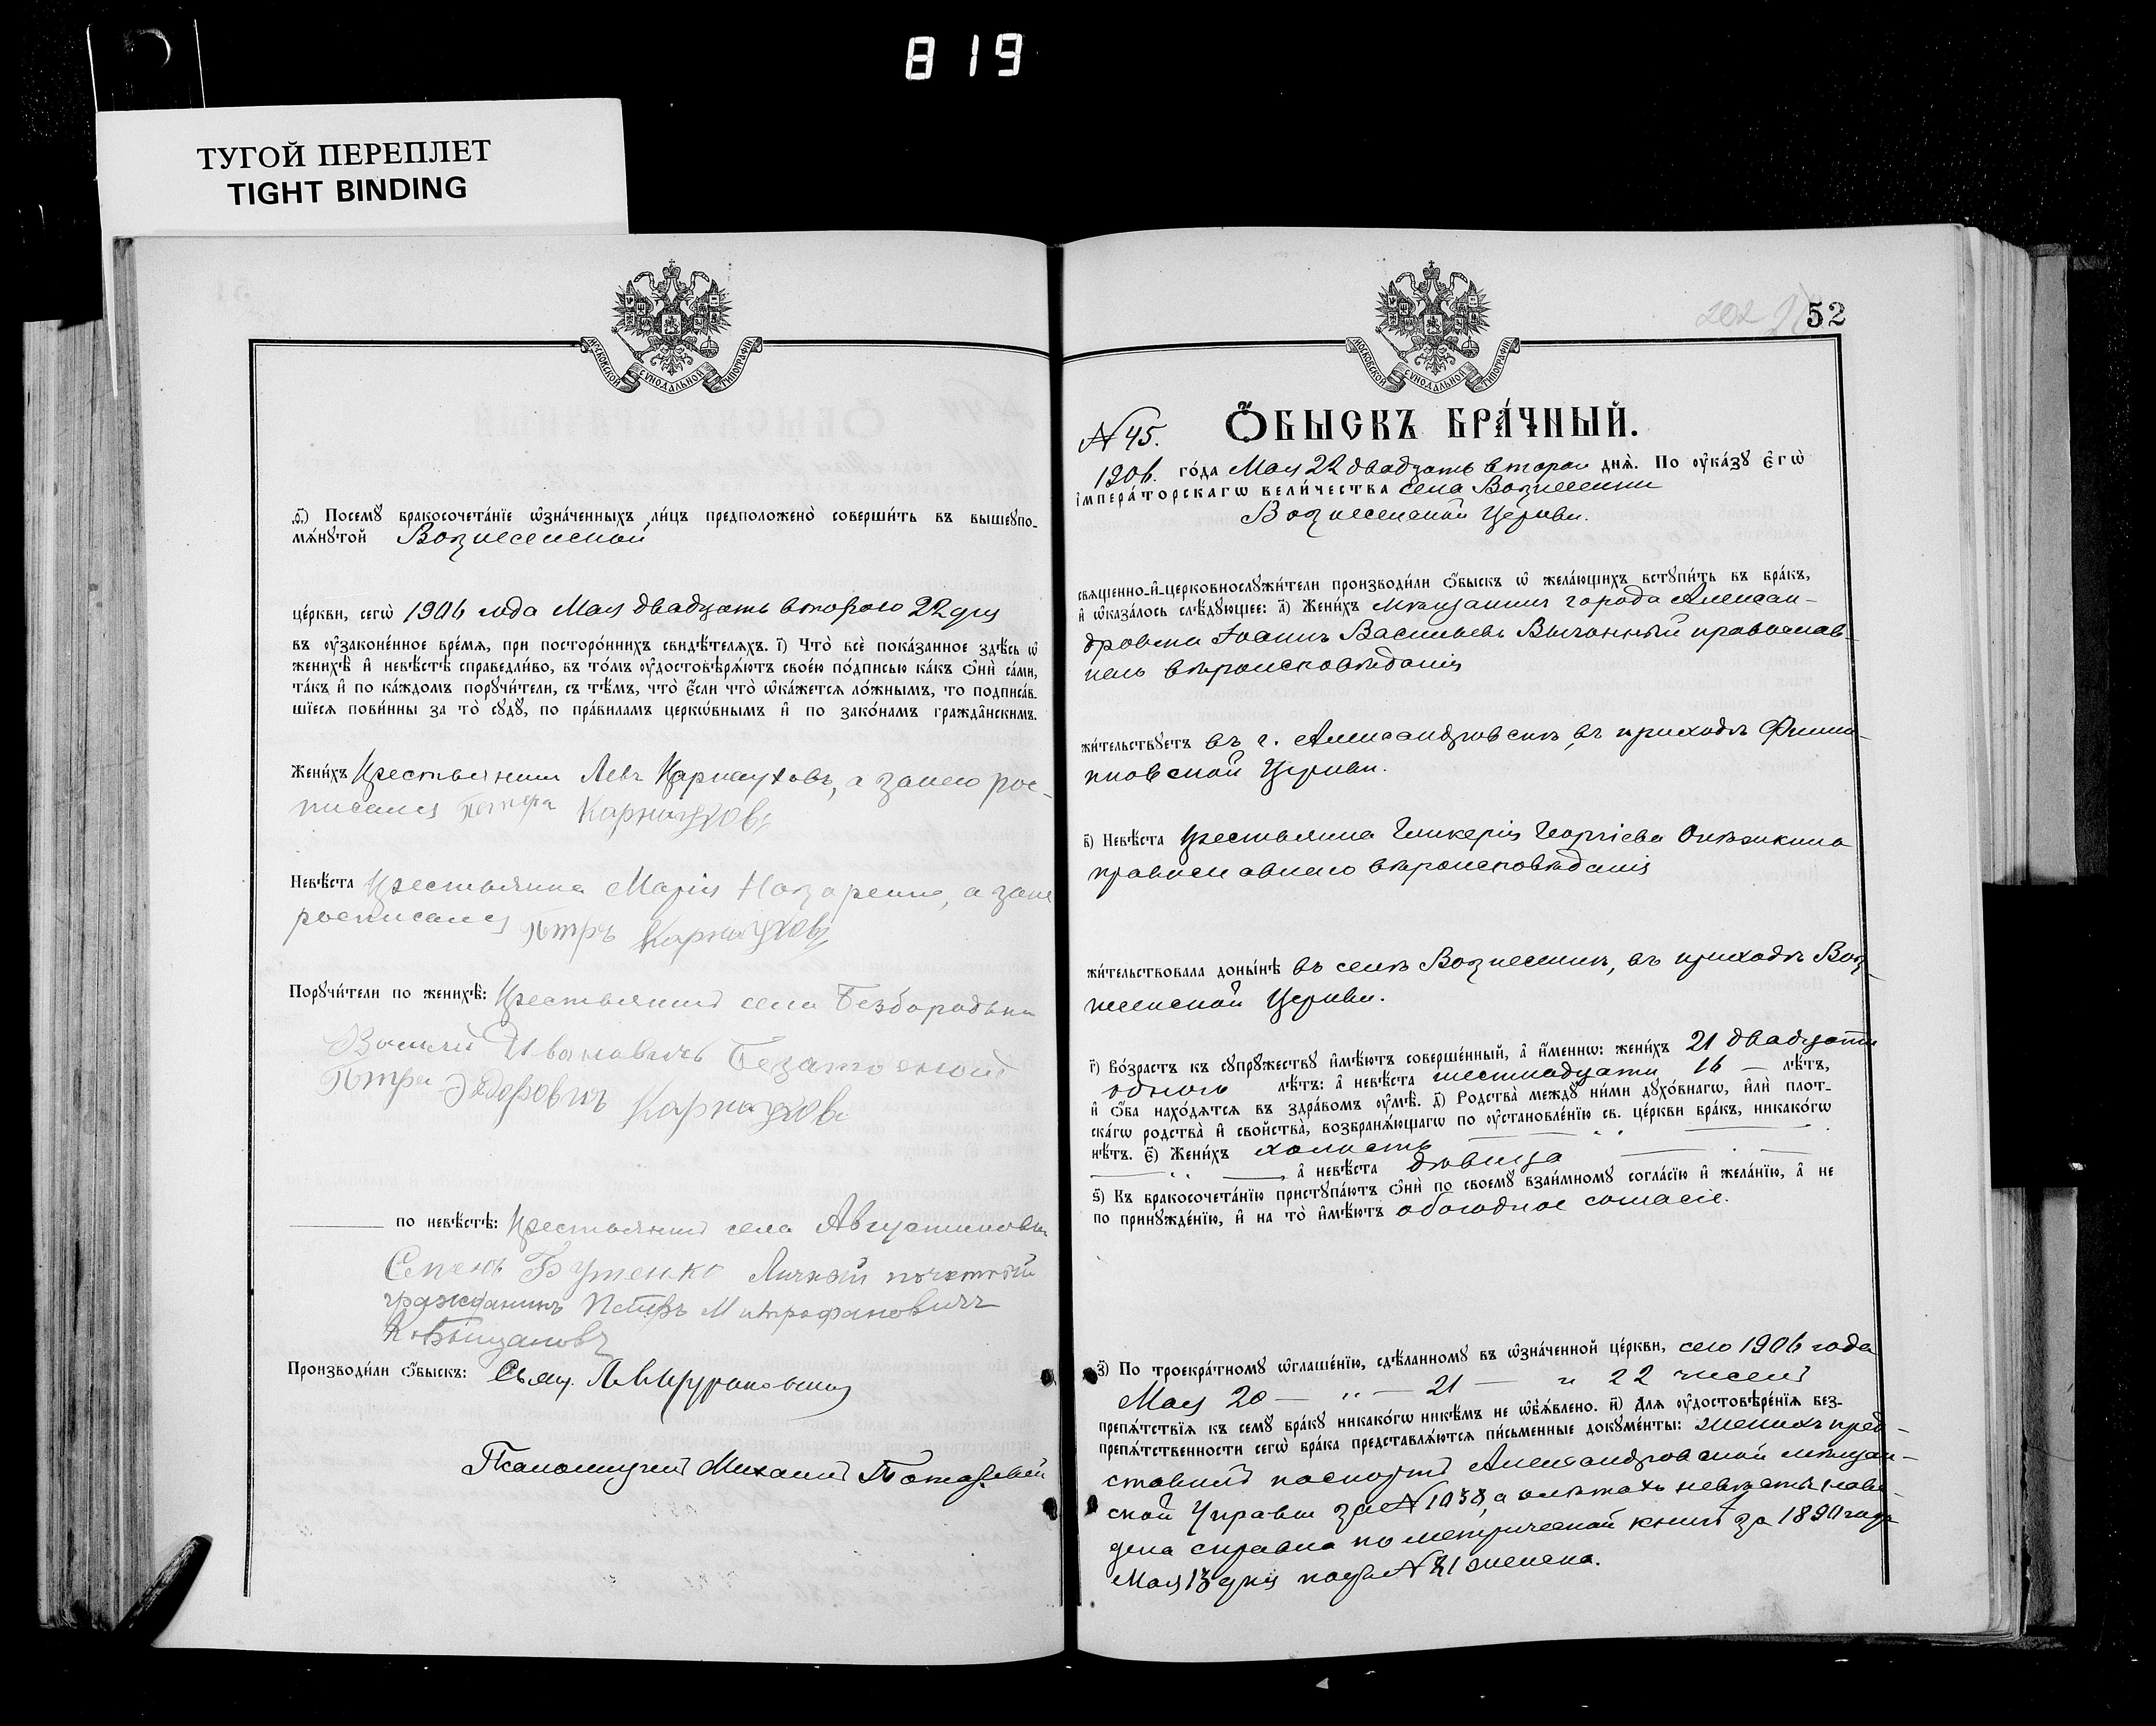 819
ТУГОЙ ПЕРЕПЛЕТ
TIGHT BINDING
МОСКОВСКОЙ СѴНОДАЛЬНОЙ ТИПОГРАФІИ
ѳ҃) Посемꙋ бракосочета́нїе ѡ҆зна́ченныхъ ли́цъ предположено̀ соверши́ть въ вышеꙋпо-
мѧ́нꙋтой Вознесенской
це́ркви, сегѡ̀ 1906 года Мая двадцать второго 22 дня
въ ᲂу҆зако́ненное вре́мѧ, при посторо́ннихъ свидѣ́телѧхъ. і҃) Что̀ всѐ пока́занное здѣ́сь ѡ҆
женихѣ̀ и҆ невѣ́стѣ справедли́во, въ то́мъ ᲂу҆достовѣрѧ́ютъ свое́ю по́дписью ка́къ ѻ҆нѝ са́ми,
та́къ и҆ по ка́ждомъ порꙋчи́тели, съ тѣ́мъ, что̀ є҆́сли что̀ ѡ҆ка́жетсѧ ло́жнымъ, то подписа́в-
шїесѧ пови́нны за то̀ сꙋдꙋ̀, по пра́виламъ церкѡ́внымъ и҆ по зако́намъ гражда́нскимъ.
Жени́хъ Крестьянинъ Левъ Карнауховъ, а занего рос-
писался Петръ Карнауховъ
Невѣ́ста Крестьянка Марія Назаренко, а зане
росписался Петръ Карнауховъ
Порꙋчи́тели по женихѣ̀: Крестьянинъ села Безбородьки
Василій Ивановичъ
Петръ Ѳедоровичъ Карнауховъ
по невѣ́стѣ: Крестьянинъ села Августиновки
Семенъ Бутенко Личный почетный
гражданинъ Петръ Митрофановичъ
Производи́ли ѻ҆́быскъ: Свящ. Л.
Псаломщикъ Михаилъ
52
202
N 45.
Ѻ҆́БЫСКЪ БРА́ЧНЫЙ.
1906. го́да Мая 22 двадцать второй днѧ̀. По ᲂу҆ка́зꙋ є҆гѡ̀
і҆мпера́торскагѡ вели́чества села Вознесенки
Вознесенской Церкви.
свѧще́нно-и҆-церковнослꙋжи́тели производи́ли ѻ҆́быскъ ѡ҆ жела́ющихъ встꙋпи́ть въ бра́къ,
и҆ ѡ҆каза́лось слѣ́дꙋющее: а҃) Жени́хъ Мѣщанинъ города Алексан-
дровска Іоаннъ Васильевъ православ-
наго вѣроисповѣданія
жи́тельствꙋетъ въ г. Александровскѣ, въ приходѣ Фили-
пповской Церкви.
в҃) Невѣ́ста Крестьянка Гликерія Георгіева
православнаго вѣроисповѣданія
жи́тельствовала доны́нѣ въ селѣ Вознесенкѣ, въ приходѣ Воз-
несенской Церкви.
г҃) Во́зрастъ къ сꙋпрꙋ́жествꙋ и҆мѣ́ютъ соверше́нный, а҆ и҆́меннѡ: жени́хъ 21 двадцати
одного лѣ́тъ: а҆ невѣ́ста шестнадцати 16 — лѣ́тъ,
и҆ ѻ҆́ба нахо́дѧтсѧ въ здра́вомъ ᲂу҆мѣ̀. д҃) Родства̀ междꙋ̀ ни́ми дꙋхо́внагѡ, и҆лѝ плот-
ска́гѡ родства̀ и҆ сво́йства̀, возбранѧ́ющагѡ по ᲂу҆становле́нїю св. це́ркви бра́къ, никако́гѡ
нѣ́тъ. є҃) Жени́хъ холостъ
а҆ невѣ́ста дѣвица
ѕ҃) Къ бракосочета́нїю пристꙋпа́ютъ ѻ҆нѝ по своемꙋ̀ взаи́мномꙋ согла́сїю и҆ жела́нїю, а҆ не
по принꙋжде́нїю, и҆ на то̀ и҆мѣ́ютъ обоюдное согласіе.
з҃) По троекра́тномꙋ ѡ҆глаше́нїю, сдѣ́ланномꙋ въ ѡ҆зна́ченной це́ркви, сего 1906 года
Мая 20 — „ — 21 — и 22 чиселъ
препѧ́тствїѧ къ семꙋ̀ бра́кꙋ никако́гѡ никѣ́мъ не ѡ҆б̾ѧ́влено. и҃) Длѧ ᲂу҆достовѣре́нїѧ без-
препѧ́тственности сегѡ̀ бра́ка представлѧ́ютсѧ пи́сьменные докꙋме́нты: женихъ пред-
ставилъ паспортъ Александровской мѣщан-
ской Управы за N 1038, а о лѣтахъ невѣсты наве-
дена справка по метрической книгѣ за 1890 годъ
Мая 13 дня подъ N 31 женска.